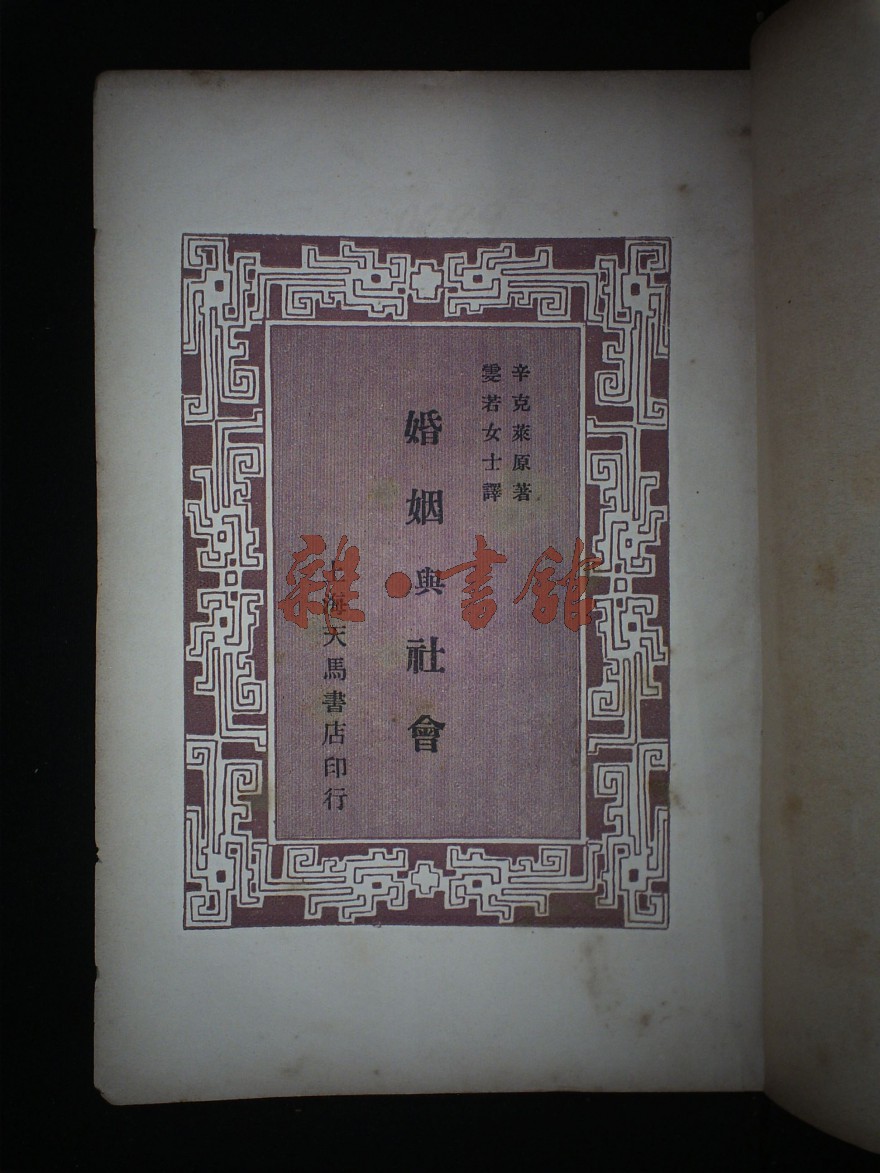 辛克萊原著
雯若女士譯
婚姻與社會
上海天馬書店印行
雜·書館